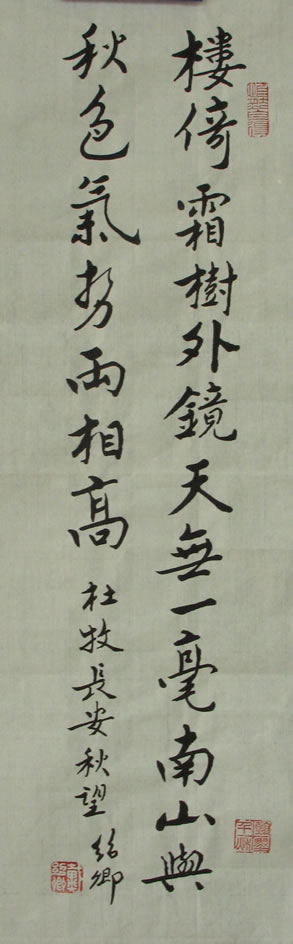 樓倚霜樹外鏡天無一毫南山與
秋色氣勢兩相高
杜牧長安秋望 紹卿